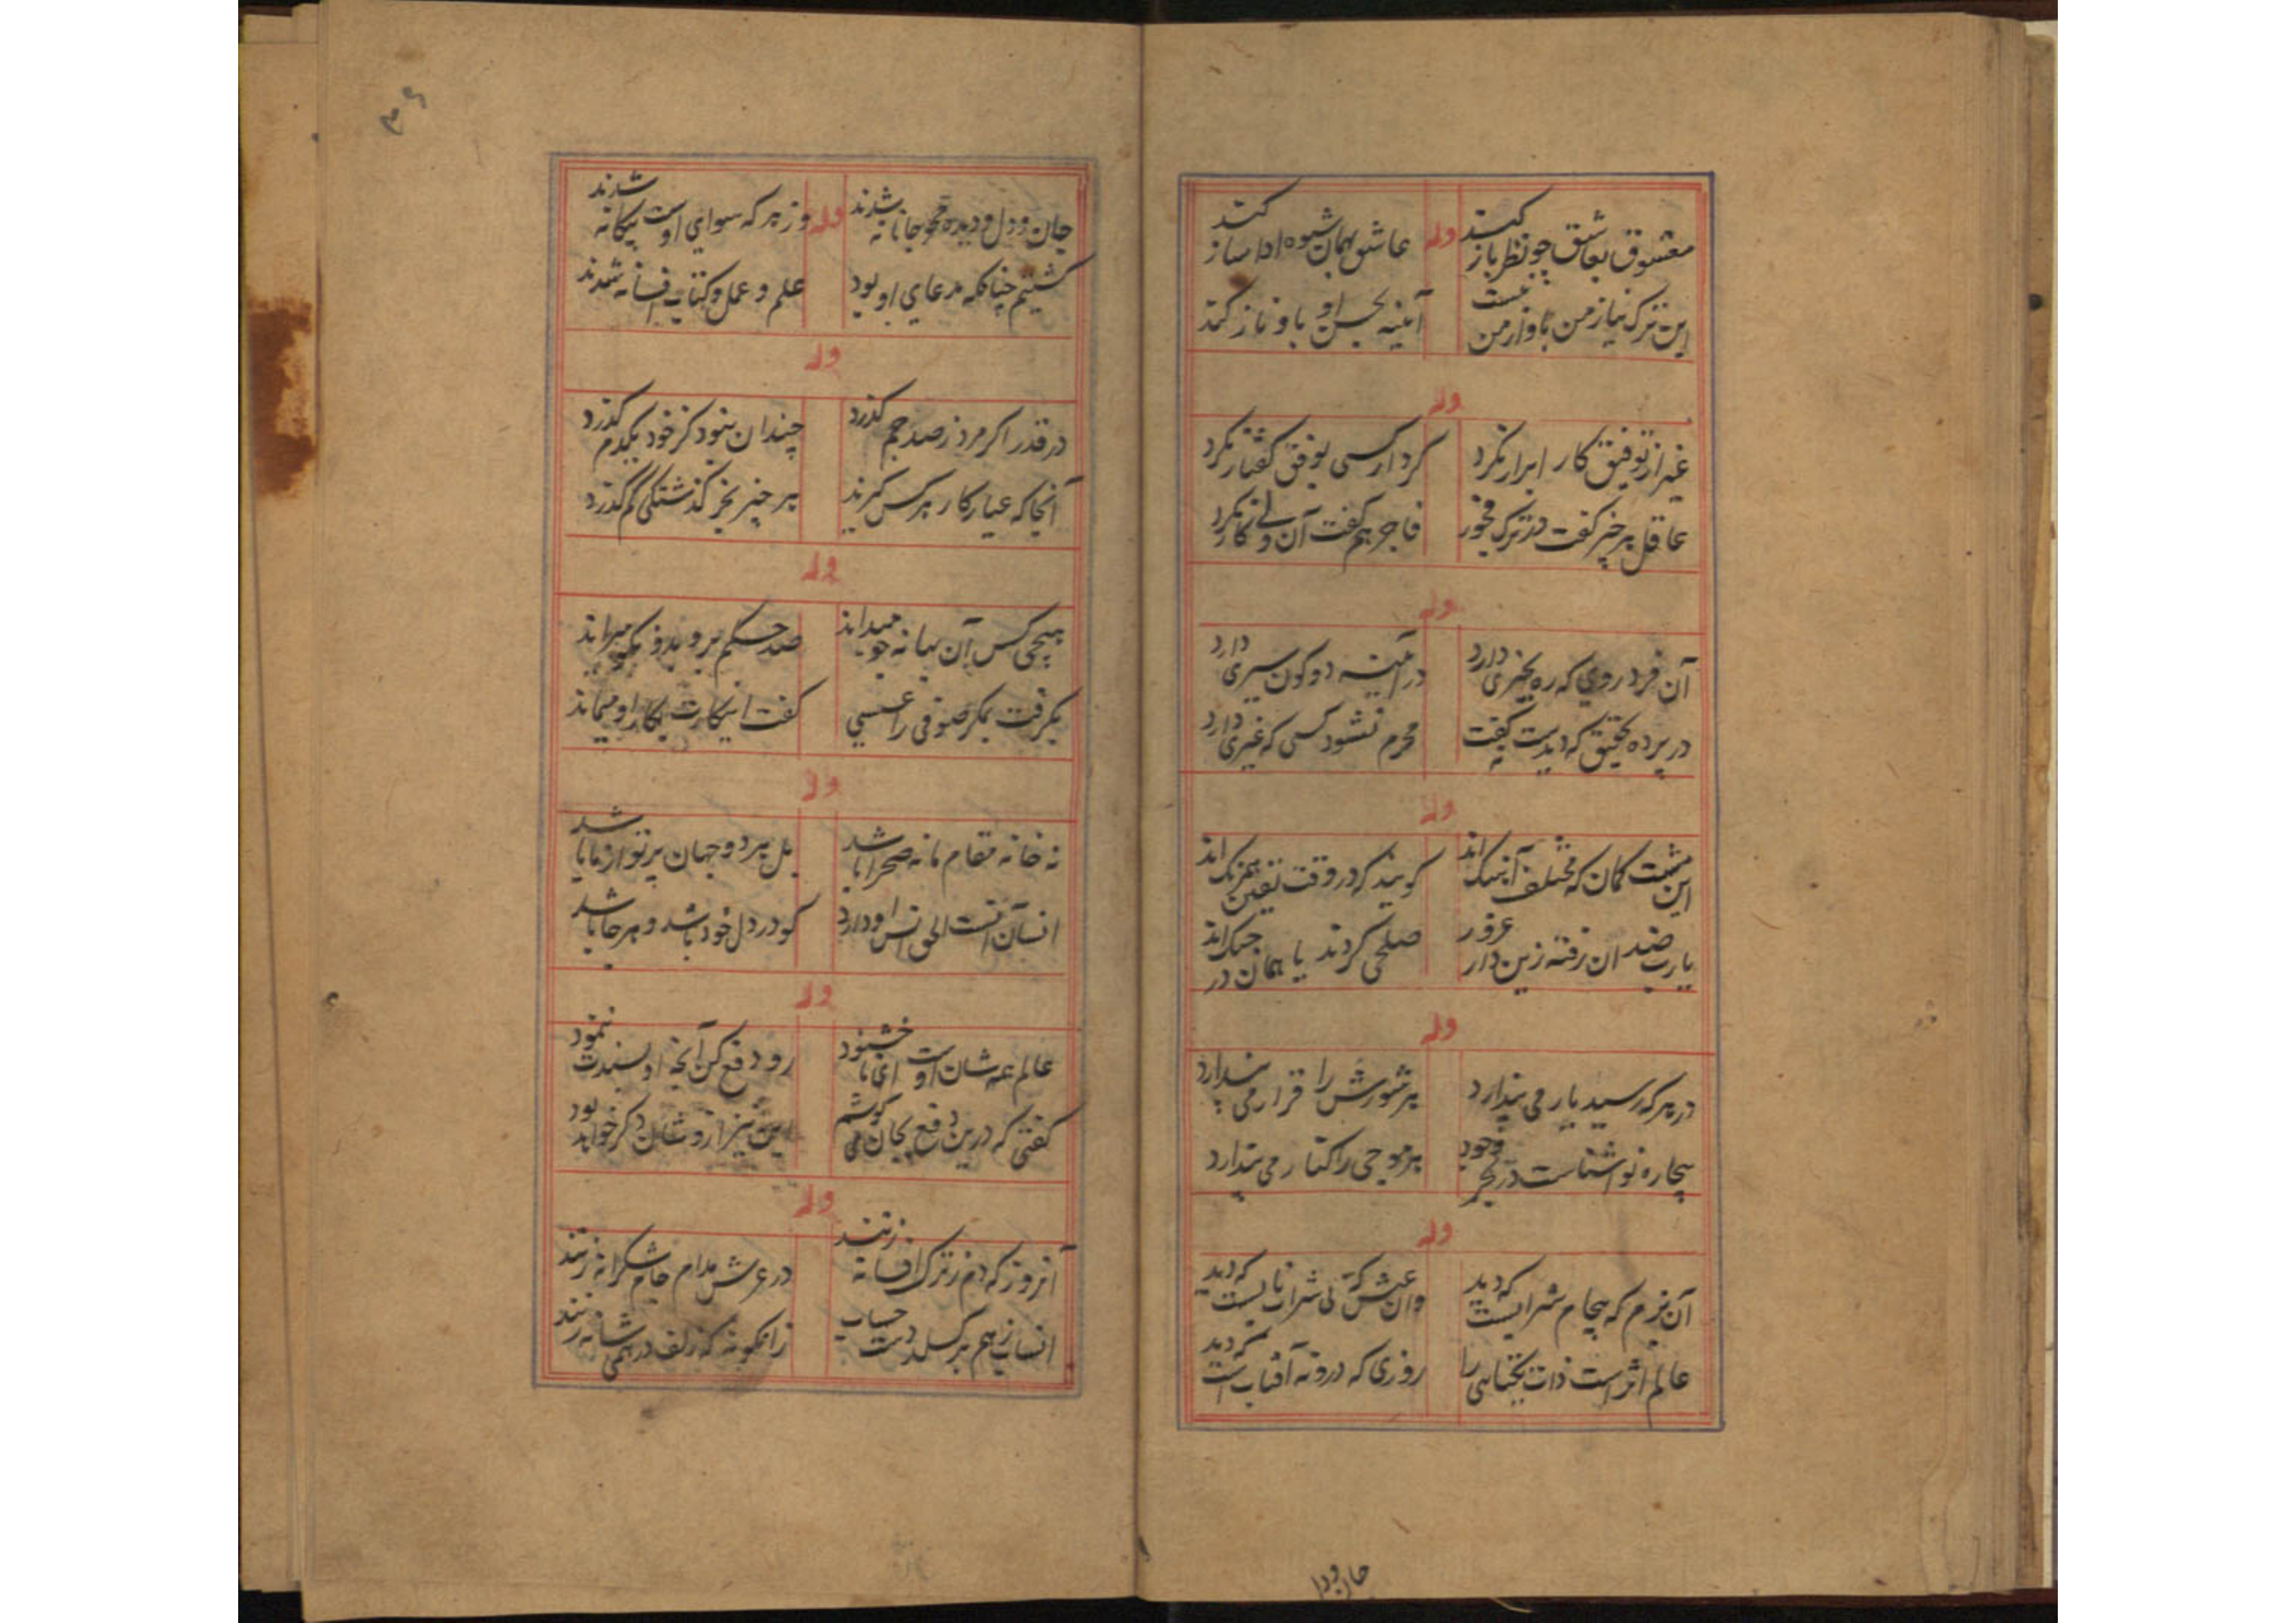 معشوق بعاشق چو نظر باز کند
وله
عاشق همان شیوه ادا ساز کند
این ترک نیاز من باو از من نیست
آئینه بحسن او باو ناز کند
وله
غیر از توفیق کار ابرار نکرد
کردار کسی بوفق گفتار نکرد
عاقل هر چیز گفت در ترک فجور
فاجر هم گفت آن ولی کار نکرد
وله
آن فرد روی که ره بخیری دارد
در آئینه دو کون سیری دارد
در پرده تحقیق که دیدست گفت
محرم نشود کسی که غیری دارد
وله
این مشت کمان که مختلف آهنگ اند
گویند که در وقت یقین همرنگ اند
یارب ضد ان رفته زین دار غرور
صلحی کردند یا همان در جنگ اند
وله
در هر که رسید یار می پندارد
هر شورش را قرار می پندارد
بیچاره نو آشناست در بحر وجود
هر موجی را کنار می پندارد
وله
آن بزم که بیجام شرابیست که دید
وان عیش که بی شراب نابیست که دید
عالم اثر است ذات یکتایی را
روزی که درو نه آفتاب است که دید
جان و دل
۳۶
جان و دل و دیده محو جانانه شدند
وله
وز هر که سوای اوست بیگانه شدند
گشتیم چنانکه مدعای او بود
علم و عمل و کتاب افسانه شدند
وله
در قدر اگر مرد ز صد جم گذرد
چندان نبود کز خود یکدم گذرد
آنجا که عیار کار هر کس گیرند
هر چیز بجز گذشتگی کم گذرد
وله
هیچی کس آن بهانه جو میداند
صد حکم برو بدو نیکو میراند
بگرفت بمکر صوفی را عسسی
گفت اینکارت بکار او میماند
وله
نه خانه مقام ما نه صحرا باشد
بل هر دو جهان پرتو از ما باشد
انسان آنست الحق انس او دارد
کو در دل خود باشد و هر جا باشد
وله
عالم همه شان اوست ای نا خشنود
رو دفع کن آنچه او پسندت ننمود
گفتی که درین دفع بجان می کوشم
این نیز ازو شان دگر خواهد بود
وله
آنروز که دم ز ترک افسانه زنند
در عرش مدام جام شکرانه زنند
انساب ز هم بر گسلد دست حساب
زانگونه که زلف درهمی شانه زنند